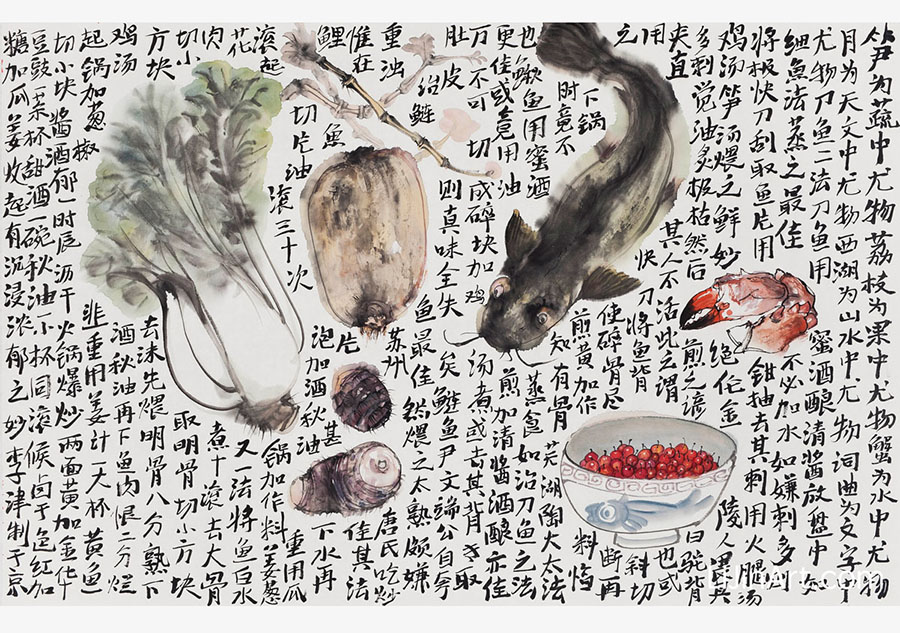 笋为蔬中尤物荔枝为果中尤物蟹为水中尤物
月为天文中尤物西湖为山水中尤物词曲为文字中
尤物刀鱼二法刀鱼用蜜酒酿清酱放盘中如
细鱼法蒸之最佳不必加水如嫌刺多则
将极快刀刮取鱼片用钳抽去其刺用火腿汤
鸡汤笋汤煨之鲜妙绝伦金陵人畏其
多刺觉油炙极枯然后煎之谚曰驼背
夹直其人不活此之谓也或
用快刀将鱼背斜切
之使碎骨尽断再
下锅煎黄加作料临
时竟不知有骨芜湖陶大太法
也鱼用蜜酒蒸食如治刀鱼之法
更佳或竟用油煎加清酱酒酿亦佳
万不可切成碎块加鸡汤煮或去其背专取
肚皮则真味全失矣鲢鱼尹文端公自夸
治鲢鱼最佳然煨之太熟颇嫌
重浊惟在苏州唐氏吃炒
鲤鱼片甚佳其法
切片油泡加酒秋油下水再
滚三十次
滚起锅加作料姜葱重用瓜
花又一法将鱼白水
肉切小煮十滚去大骨
方块取明骨切小方块
鸡汤去沫先煨明骨八分熟下
酒秋油再下鱼肉煨二分烂
起锅加葱椒韭重用姜汁一大杯黄鱼
切小块酱酒郁一时辰沥干火锅爆炒两面黄加金华
豆豉一茶杯甜酒一碗秋油一小杯同滚候卤干色红加
糖加瓜姜收起有沉浸浓郁之妙李津制于京